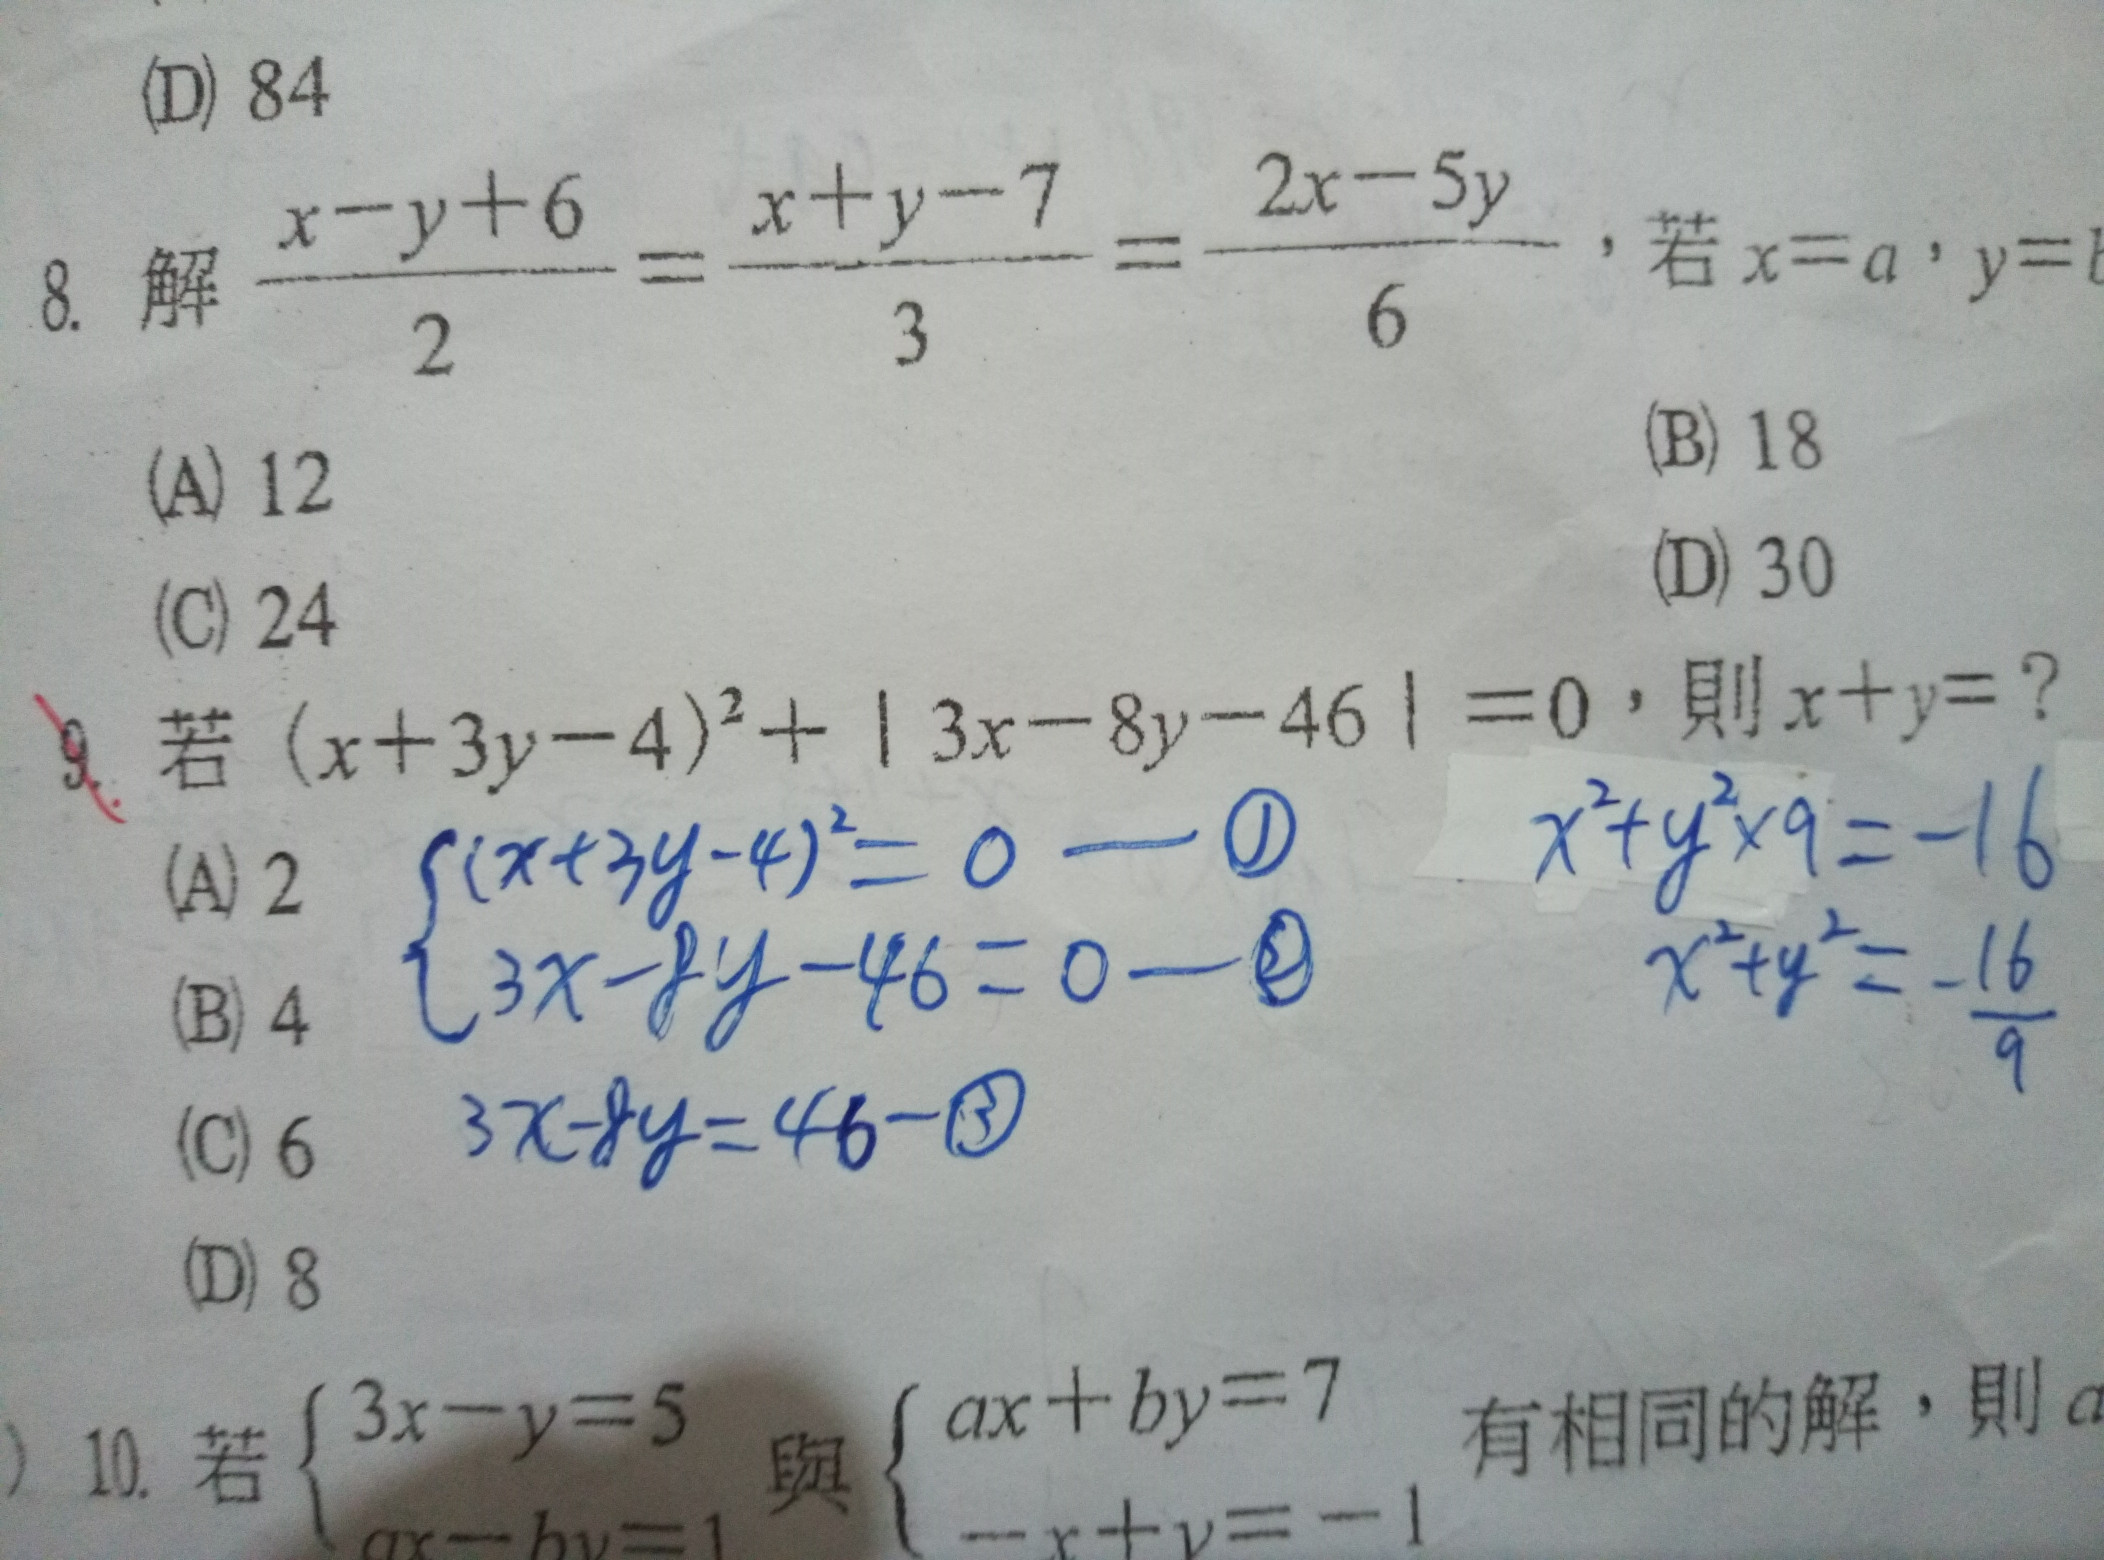 (D) 84
8. 解 (x－y＋6)/2＝(x＋y－7)/3＝(2x－5y)/6，若 x＝a，y＝b
(A) 12
(B) 18
(C) 24
(D) 30
9. 若 (x＋3y－4)²＋｜3x－8y－46｜＝0，則 x＋y＝？
(A) 2
(B) 4
(C) 6
(D) 8
{(x+3y-4)²=0 — ①
3x-8y-46=0 — ②
3x-8y=46-③
x²+y²×9=-16
x²+y²=-16/9
) 10. 若 {3x－y＝5
ax－by＝1
與 {ax＋by＝7
－x＋y＝－1
有相同的解，則 a